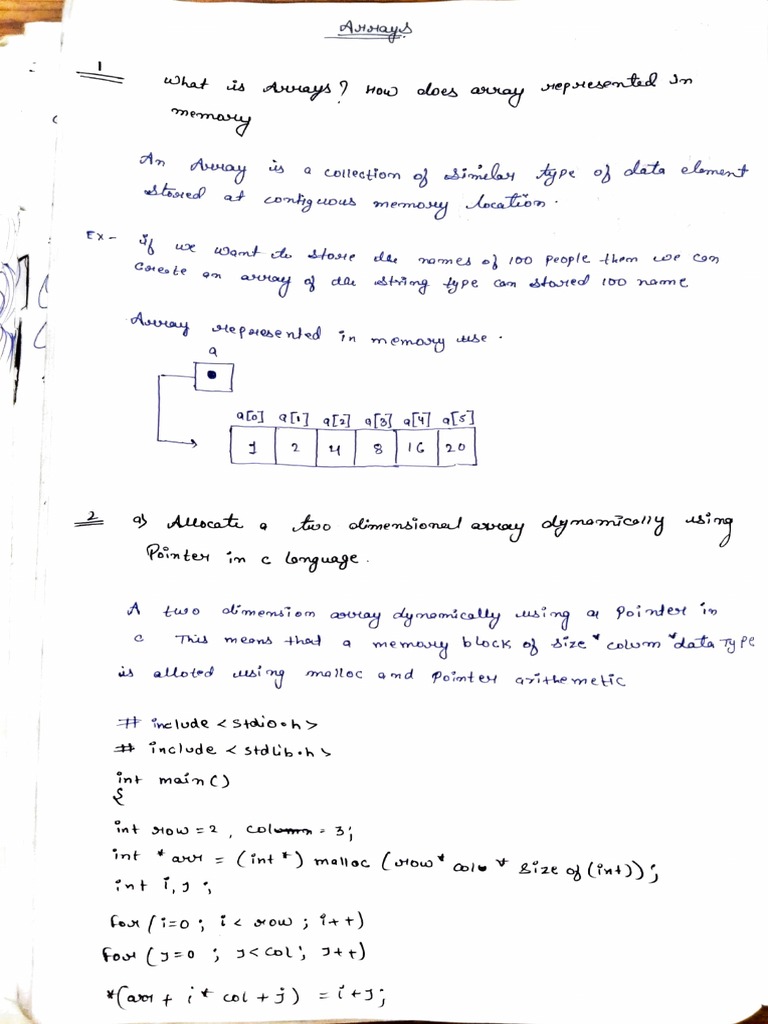 Arrays
1
What is Arrays? How does array represented in
memory
An Array is a collection of similar type of data element
stored at contiguous memory location.
Ex- if we want to store the names of 100 people then we can
create an array of the string type can stored 100 name
Array represented in memory use.
a
a[0] a[1] a[2] a[3] a[4] a[5]
1 2 4 8 16 20
2 a) Allocate a two dimensional array dynamically using
Pointer in c language.
A two dimension array dynamically using a Pointer in
c This means that a memory block of size * colum * data Type
is alloted using malloc and Pointer arithemetic
# include < stdio.h >
# include < stdlib.h >
int main()
{
int row = 2, col = 3;
int *arr = (int*) malloc (row * col * size of (int));
int i, j;
for (i=0 ; i < row ; i++)
for (j=0 ; j<col ; j++)
*(arr + i* col + j) = i+j;